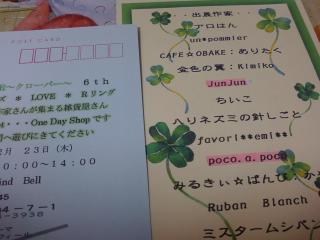 POST CARD
・・出展作家・・
アロはん
un*pommier
CAFE☆OBAKE：めりたく
金色の翼：Kimiko
JunJun
ちいこ
ハリネズミの針しごと
favori**emi**
poco.a.poco
みるきぃ☆ぱんぴ
Ruban Blanch
ミスタームシパン
～クローバー～ 6th
ズ * LOVE * Rリング
作家さんが集まる雑貨屋さん
・・・One Day Shop
へ遊びにきてください
月 23日（木）
0：00～14：00
ind Bell
45
4-7-1
-3938